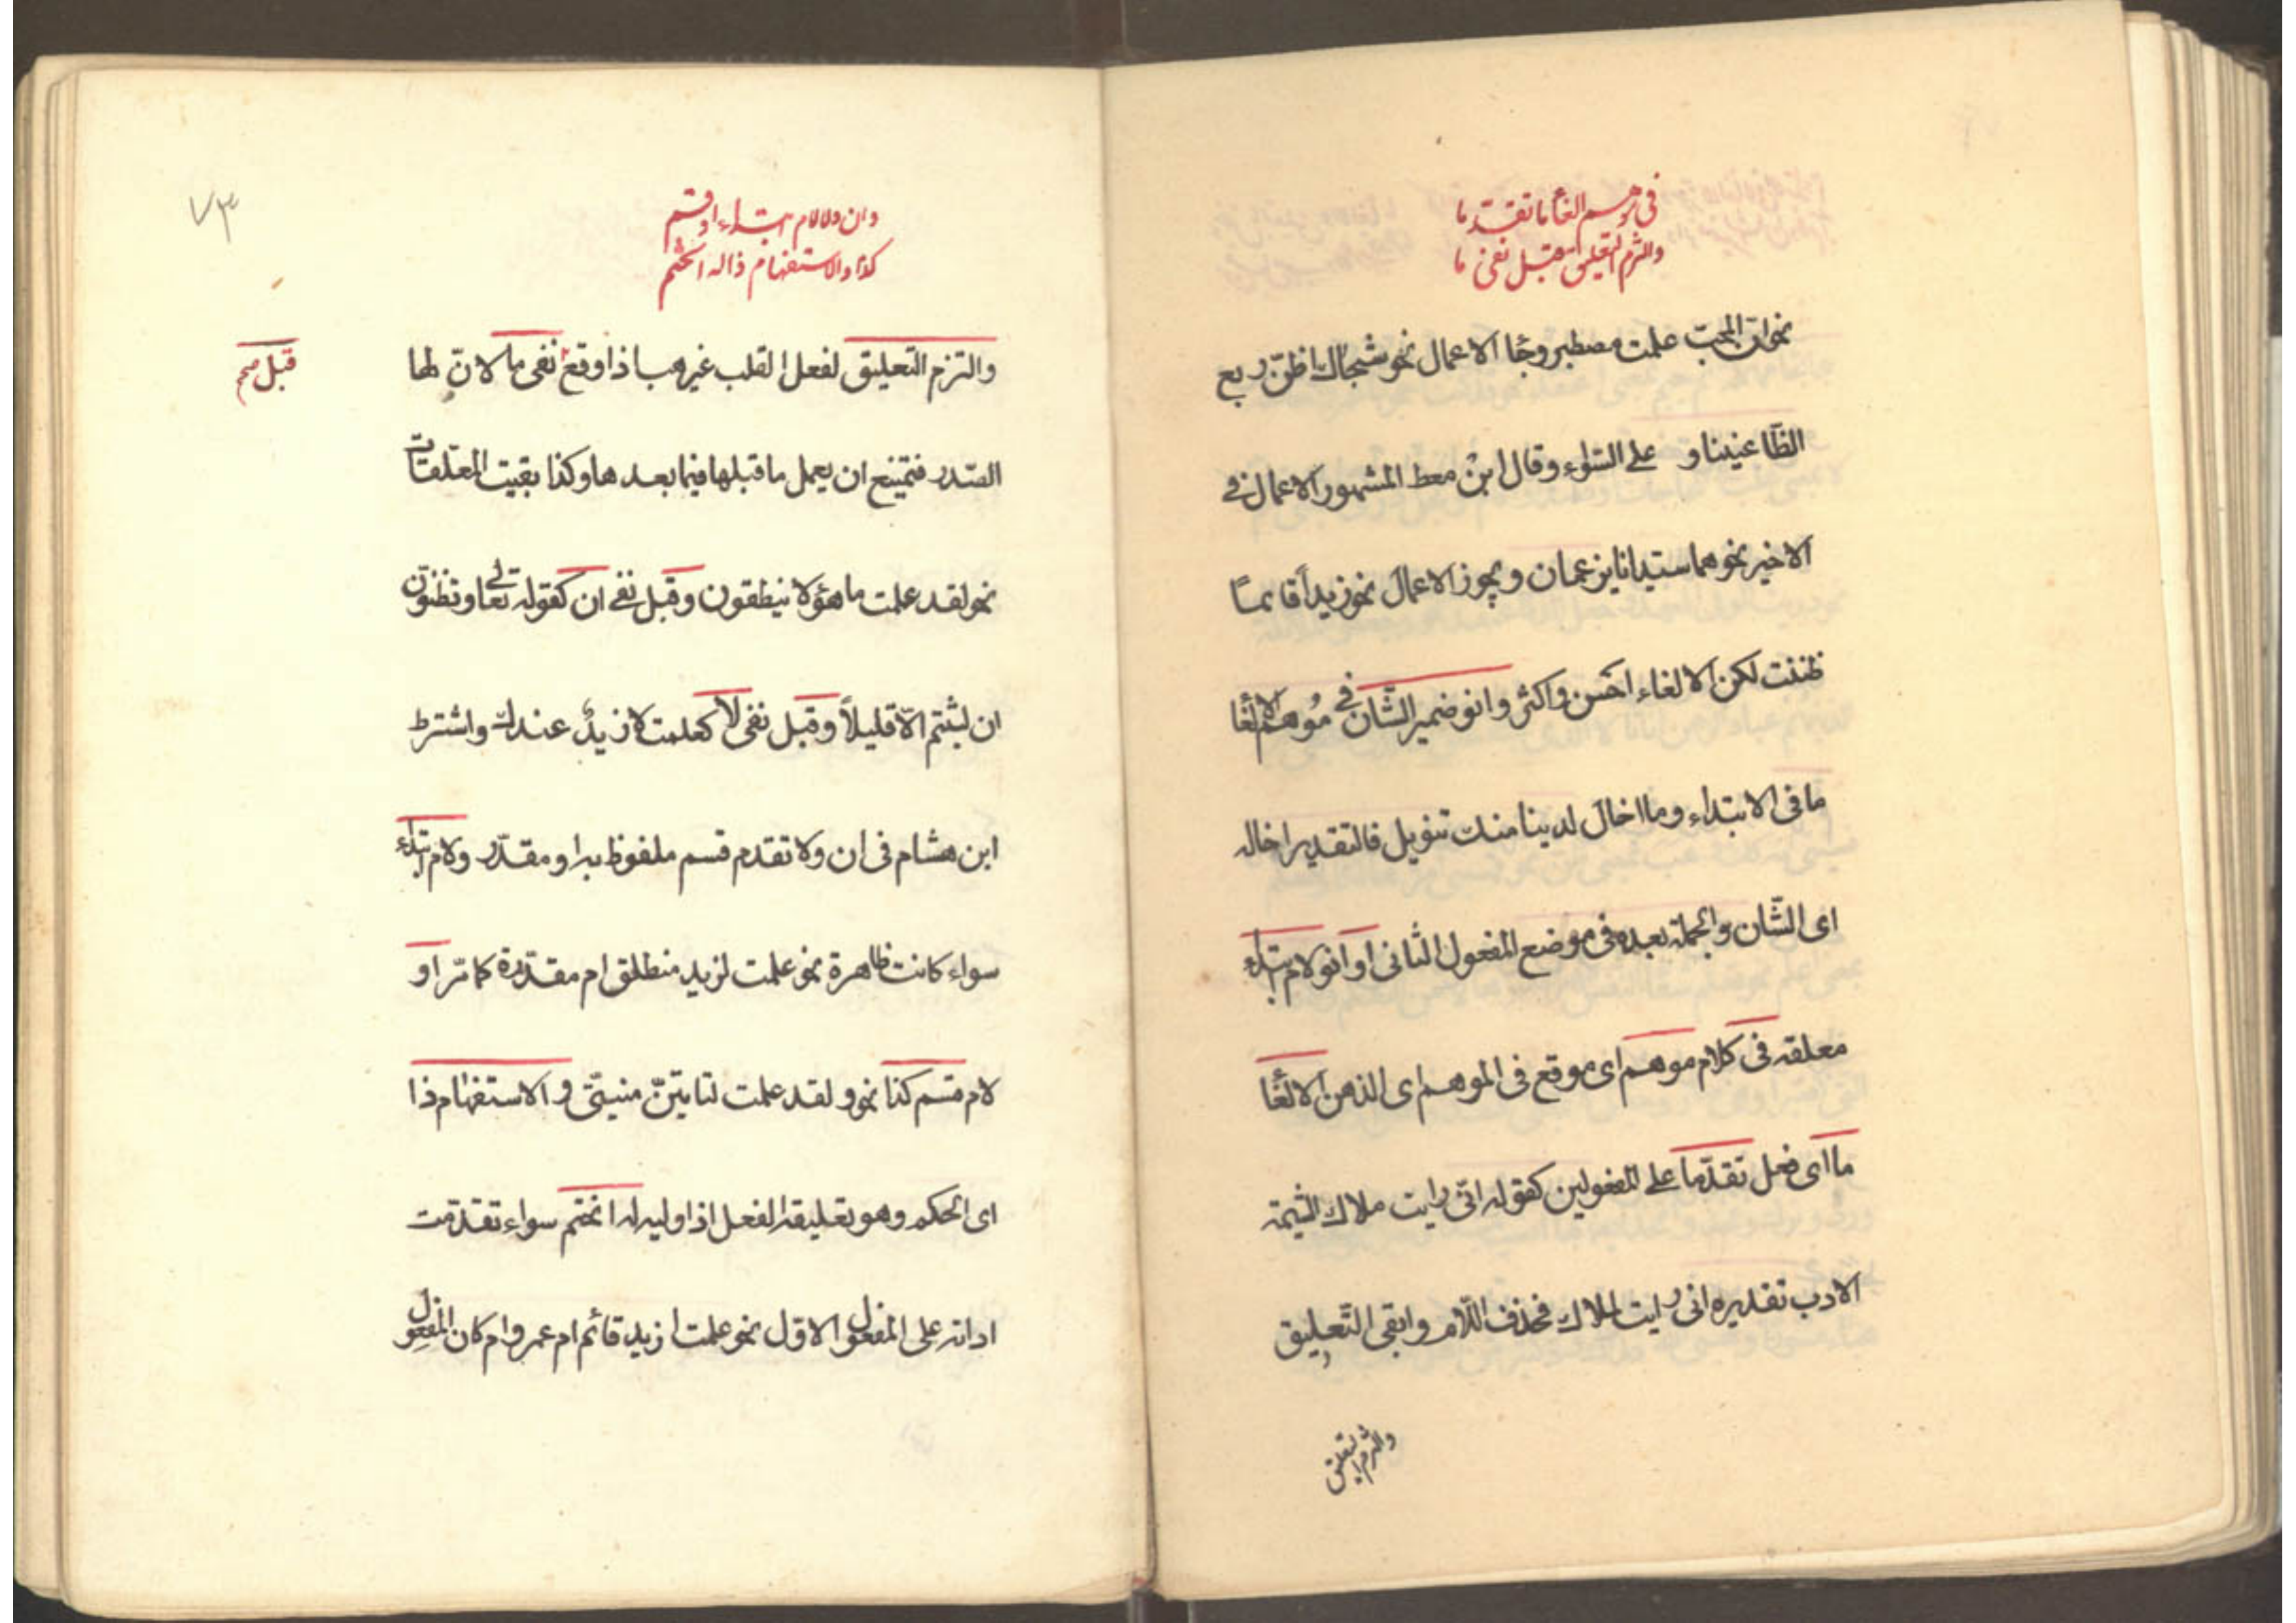 في موهم الغاء ما تقدما
والتزم التعليق قبل نفي ما
نحو ان المحب علمت مصطبر وجا الاعمال نحو شجاك اظن ربع
الظاعنينا و على السواء وقال ابن معط المشهور الاعمال في
الاخير نحو هما سيدانا يزعمان ويجوز الاعمال نحو زيداً قائماً
ظننت لكن الالغاء احسن واكثر وانو ضمير الشّان في مُوهم الالغا
ما في الابتداء وما اخال لدينا منك تنويل فالتقدير اخاله
اى الشّان والجملة بعده في موضع المفعول الثانى او انو لام ابتداء
معلقه في كلام موهم اى موقع في الموهم اى الذهن الالغا
ما اى فعل تقدّما على المفعولين كقوله انّى رايت ملاك الشيمة
الادب تقديره انى رايت لملاك فحذف اللّام وابقى التّعليق
والتزم التعليق
٧٣
وان ولا لام ابتداء او قسم
كذا والاستفهام ذا له انحتم
والتزم التّعليق لفعل القلب غير هب اذا وقع نفى ما لانّ لها
قبل صح
الصّدر فتمتنع ان يعمل ما قبلها فيما بعدها وكذا بقيت المعلقات
نحو لقد علمت ما هؤلا ينطقون وقبل نفى ان كقوله تعالى وتظنون
ان لبثتم الاّ قليلاً وقبل نفى لا كعلمت لا زيدٌ عندك واشترط
ابن هشام في ان ولا تقدم قسم ملفوظ به او مقدّر ولام ابتداء
سواء كانت ظاهرة نحو علمت لزيد منطلق ام مقدّرة كما مّر او
لام قسم كذا نحو ولقد علمت لتاتينّ منيتّى والاستفهام ذا
اى الحكم وهو تعليقه الفعل اذا وليه له انحتم سواء تقدّمت
اداته على المفعول الاوّل نحو علمت ازيد قائم ام عمرو ام كان المفعول